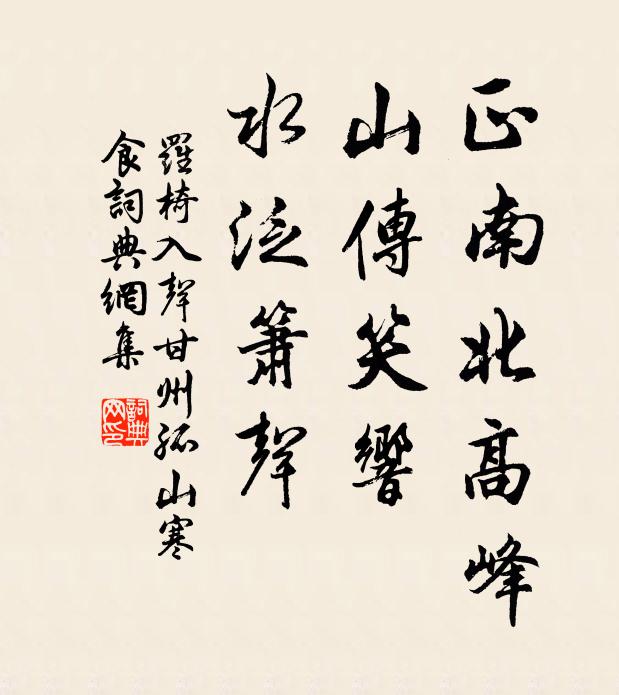 正南北高峰
山傳笑響
水泛簫聲
羅椅入聲甘州孤山寒
食詞典網集
詞典
网印